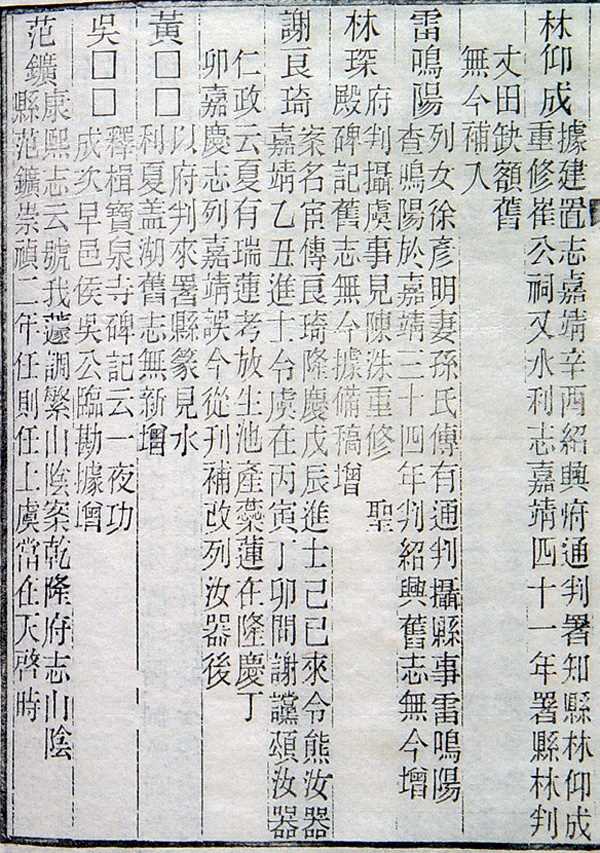 林仰成
據建置志嘉靖辛酉紹興府通判署知縣林仰成
重修崔公祠又水利志嘉靖四十一年署縣林判
丈田缺額舊
無今補入
雷鳴陽
列女徐彥明妻孫氏傳有通判攝縣事雷鳴陽
查鳴陽於嘉靖三十四年判紹興舊志無今增
林琛
府判攝虞事見陳洙重修 聖
殿碑記舊志無今據備稿增
謝良琦
案名宦傳良琦隆慶戊辰進士己巳來令熊汝器
嘉靖乙丑進士令虞在丙寅丁卯間謝讜頌汝器
仁政云夏有瑞蓮考放生池產蘂蓮在隆慶丁
卯嘉慶志列嘉靖誤今從刊補改列汝器後
黃□□
以府判來署縣篆見水
利夏盖湖舊志無新增
吳□□
釋楫寶泉寺碑記云一夜功
成次早邑侯吳公臨勘據增
范鑛
康熙志云號我蘧調繁山陰案乾隆府志山陰
縣范鑛崇禎二年任則任上虞當在天啓時